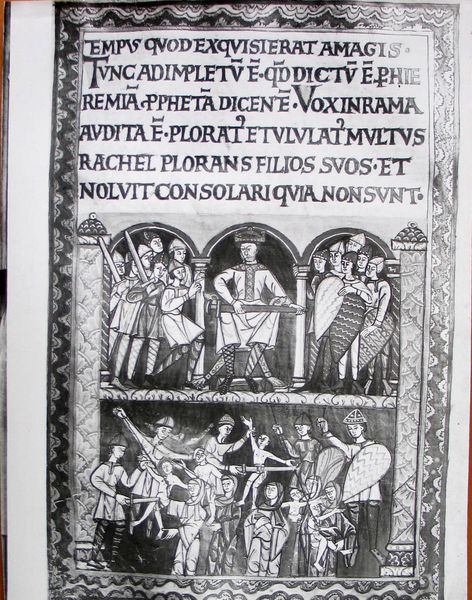 TEMPUS QUOD EXQUISIERAT A MAGIS·
TUNC ADIMPLETŪ Ē· Q̄D DICTŪ Ē· P̱ HIE
REMIĀ· P̱PHETĀ DICENĒ· VOX IN RAMA
AUDITA Ē· PLORATꝰ ET ULULATꝰ MULTUS
RACHEL PLORANS FILIOS SUOS· ET
NOLUIT CONSOLARI QUIA NON SUNT·